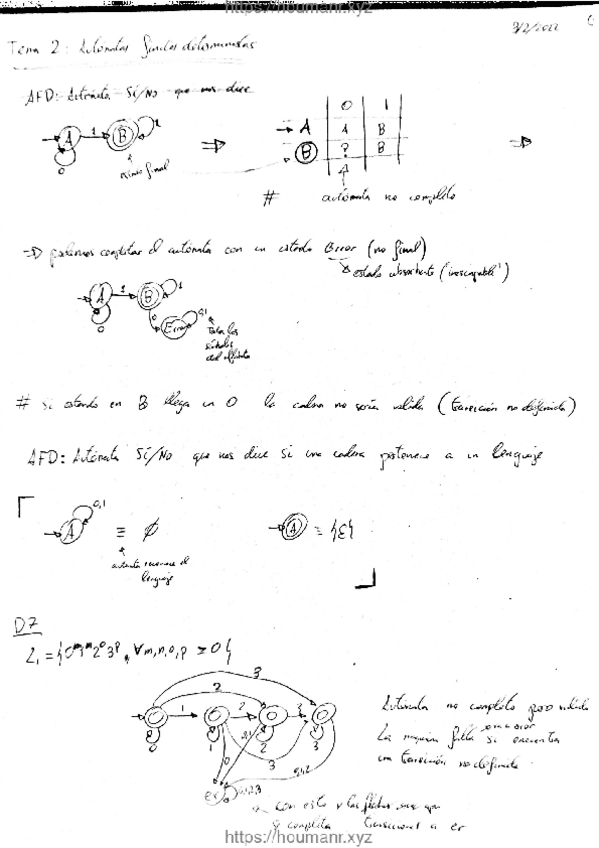 https://houmanr.xyz
3/2/2022
Tema 2: Autómatas finitos deterministas
AFD: Autómata Sí/No que nos dice
A 1 B 1
0
estado final
⇒
0 1
→ A A B
B ? B
⇒
# autómata no completo
⇒ podemos completar el autómata con un estado Error (no final)
estado absorbente ("inescapable")
A 1 B 1
0 0 Error 0,1
Todos los
símbolos
del alfabeto
# si estando en B llega un 0 la cadena no sería válida (transición no definida)
AFD: Autómata Sí/No que nos dice si una cadena pertenece a un lenguaje
0,1
A ≡ ∅
autómata reconoce el
lenguaje
A ≡ {ε}
D7
L₁ = {0ᵐ1ⁿ2ᵒ3ᵖ, ∀m,n,o,p ≥ 0}
3
2
1 2 3
0 1 2 3
3
0
0,1,2
er 0,1,2,3
Autómata no completo pero válido
La máquina falla si encuentra
una transición no definida
con esto y las flechas que
completa er
https://houmanr.xyz